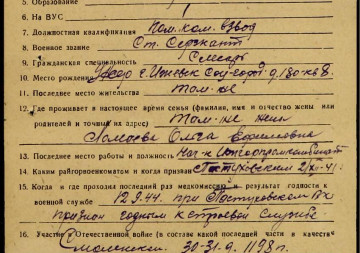 5. Образование
6. На ВУС
7. Должностная квалификация Пом. ком. взвод
8. Военное звание Ст. Сержант
9. Гражданская специальность Слесарь
10. Место рождения г. Ижевск Соц-город д. 130 кв 8.
11. Последнее место жительства там-же
12. Где проживает в настоящее время семья (фамилия, имя и отчество жены или
родителей и точный их адрес) там-же жена
Ольга Ефимовна
13. Последнее место работы и должность Нач-к
14. Каким райгорвоенкоматом и когда призван Пастуховским 41г.
15. Когда и где проходил последний раз медкомиссию и результат годности к
военной службе 12.9.44. при Пастуховском РВК
признан годным к строевой службе
16. Участие в Отечественной войне (в составе какой последней части и в качестве
Смоленском 30-31.9. 1198 п.